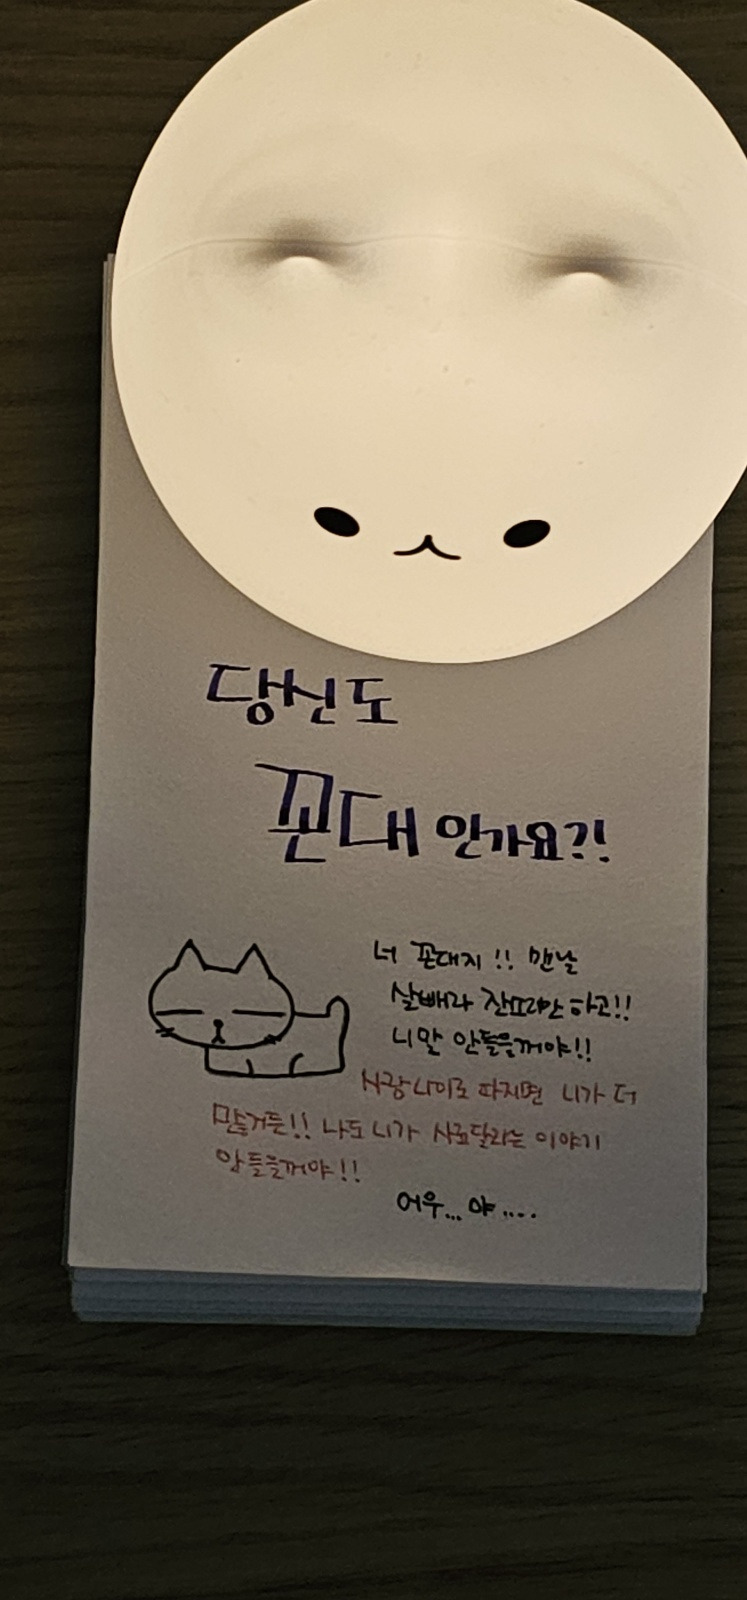 당신도
꼰대인가요?!
너 꼰대지!! 맨날
살빼라 잔소리만 하고!!
니말 안들을꺼야!!
사람나이로 따지면 니가 더
많거든!! 나도 니가 사료달라는 이야기
안들을꺼야!!
어우... 야....